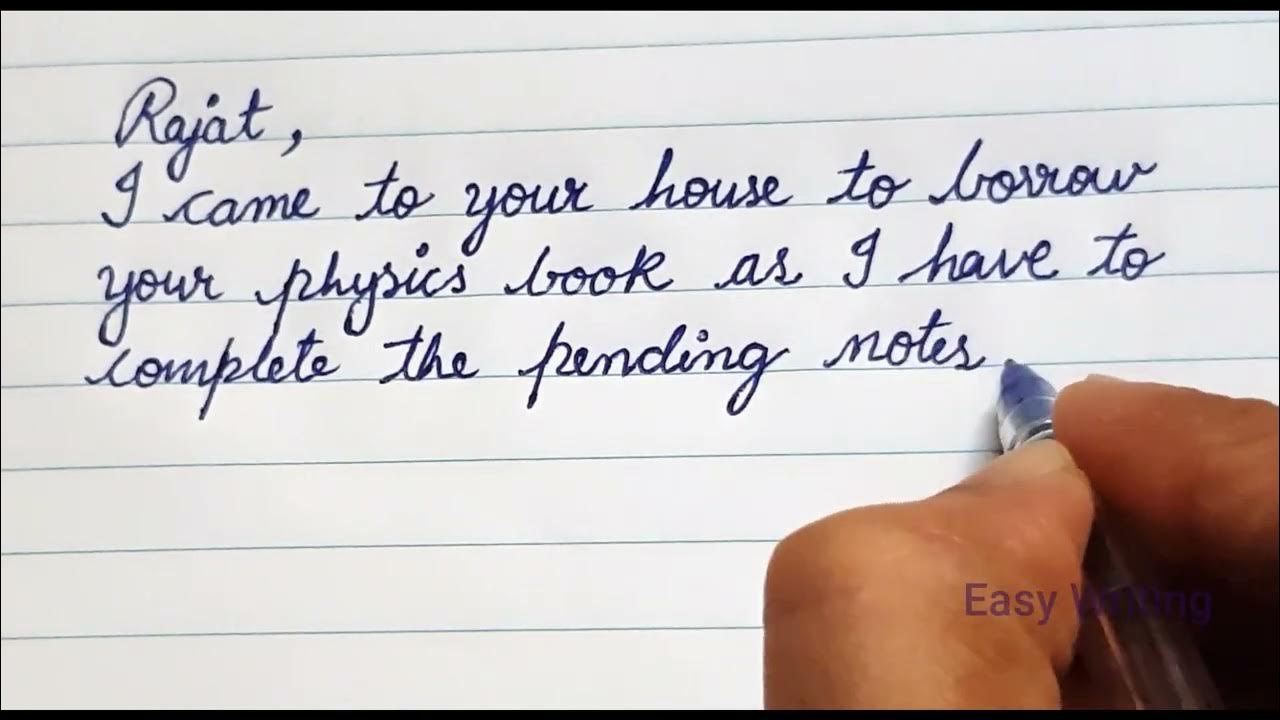 Rajat,
I came to your house to borrow
your physics book as I have to
complete the pending notes.
Easy Writing